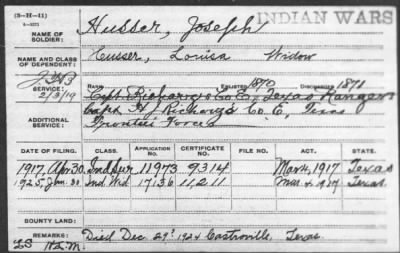 (3-H-41)
INDIAN WARS
NAME OF SOLDIER: Husser, Joseph
NAME AND CLASS OF DEPENDENT: Husser, Louisa Widow
SERVICE: RANK ENLISTED 1870 DISCHARGED 1871
2/3/19 Capt. Richarz Co E, Texas Rangers
ADDITIONAL SERVICE: Capt H J Richarz Co. E, Texas
Frontier Forces
DATE OF FILING. CLASS. APPLICATION NO. CERTIFICATE NO. FILE NO. ACT. STATE.
1917, Apr 30. Ind Sur 11973 9314 Mar 4, 1917 Texas
1925, Jan. 30 Ind. Wid 17136 11211 Mar 4 1917 Texas.
BOUNTY LAND:
REMARKS: Died Dec. 29, 1924 Castroville, Texas